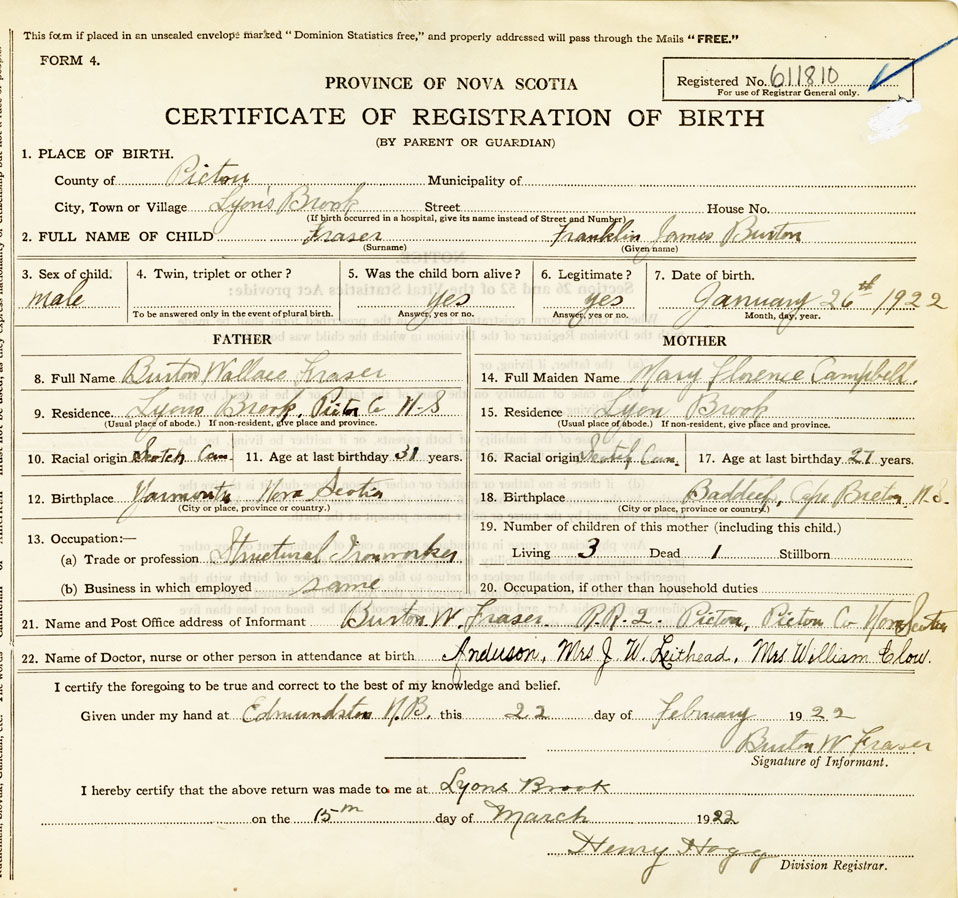 This form if placed in an unsealed envelope marked "Dominion Statistics free," and properly addressed will pass through the Mails "FREE."
FORM 4.
Registered No. 611810
For use of Registrar General only.
PROVINCE OF NOVA SCOTIA
CERTIFICATE OF REGISTRATION OF BIRTH
(BY PARENT OR GUARDIAN)
1. PLACE OF BIRTH.
County of Pictou Municipality of
City, Town or Village Lyon's Brook Street House No.
(If birth occurred in a hospital, give its name instead of Street and Number)
2. FULL NAME OF CHILD Fraser Franklin James Burton
(Surname) (Given name)
3. Sex of child. 4. Twin, triplet or other? 5. Was the child born alive? 6. Legitimate? 7. Date of birth.
male yes yes January 26th 1922
To be answered only in the event of plural birth. Answer, yes or no. Answer, yes or no. Month, day, year.
FATHER MOTHER
8. Full Name Burton Wallace Fraser 14. Full Maiden Name Mary Florence Campbell.
9. Residence. Lyons Brook, Pictou Co N-S 15. Residence Lyon Brook
(Usual place of abode.) If non-resident, give place and province. (Usual place of abode.) If non-resident, give place and province.
10. Racial origin Scotch Can. 11. Age at last birthday 31 years. 16. Racial origin Scotch Can. 17. Age at last birthday 27 years.
12. Birthplace Yarmouth Nova Scotia 18. Birthplace Baddeck, Cape Breton N.S.
(City or place, province or country.) (City or place, province or country.)
13. Occupation:— 19. Number of children of this mother (including this child.)
(a) Trade or profession Structural Ironworker Living 3 Dead 1 Stillborn
(b) Business in which employed same 20. Occupation, if other than household duties
21. Name and Post Office address of Informant Burton W. Fraser R.R. 2. Pictou, Pictou Co Nova Scotia
22. Name of Doctor, nurse or other person in attendance at birth Anderson, Mrs J. W. Leithead, Mrs William Clow.
I certify the foregoing to be true and correct to the best of my knowledge and belief.
Given under my hand at Edmundston N.B. this 22 day of February 1922
Burton W Fraser
Signature of Informant.
I hereby certify that the above return was made to me at Lyons Brook
on the 15th day of March 1922
Henry Hogg
Division Registrar.